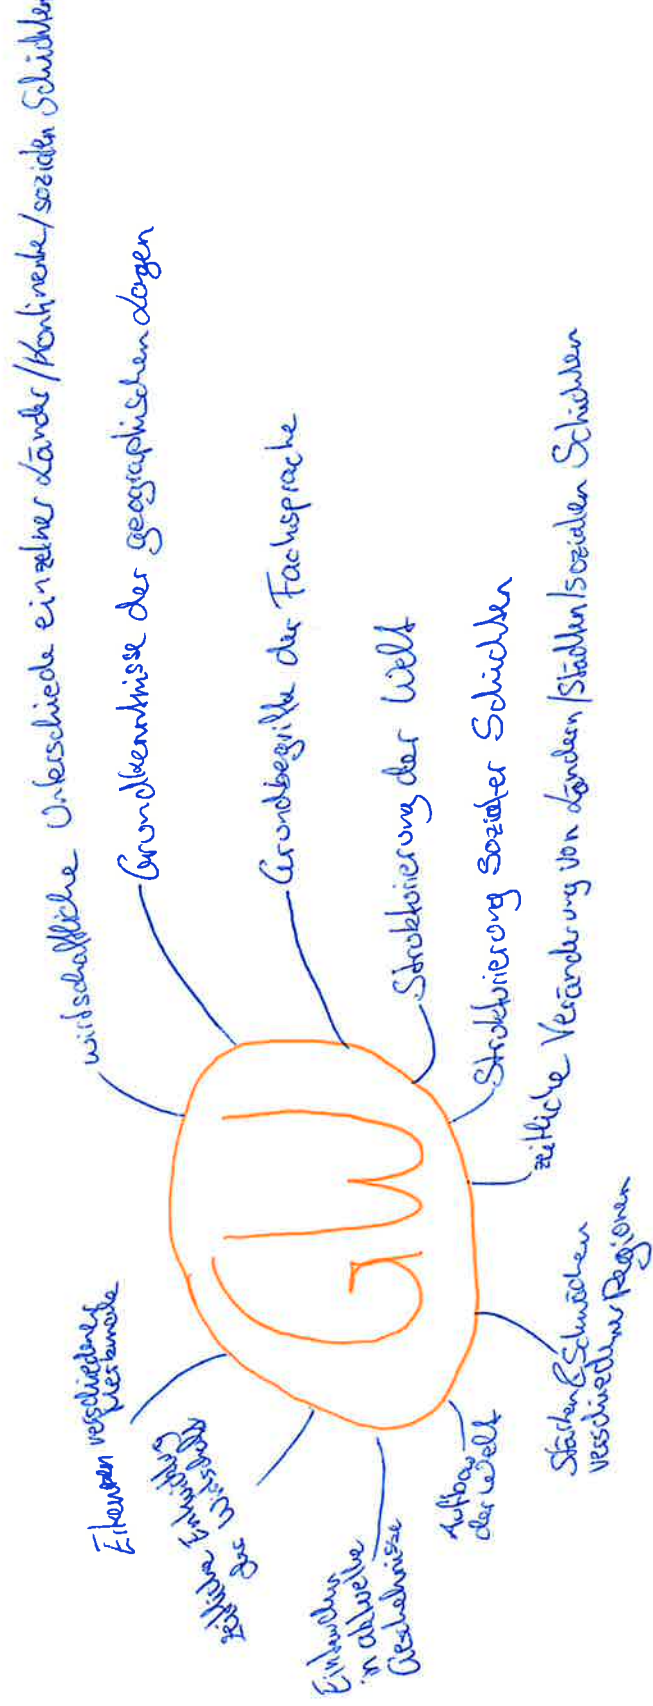 GW
wirtschaftliche Unterschiede einzelner Länder/Kontinente/sozialen Schichten
Grundkenntnisse der geographischen Lagen
Grundbegriffe der Fachsprache
Strukturierung der Welt
Strukturierung sozialer Schichten
zeitliche Veränderung von Ländern/Städten/sozialen Schichten
Stärken & Schwächen
verschiedener Regionen
Aufbau
der Welt
Eintauchen
in aktuelle
Geschehnisse
zeitliche Entwicklung
der Wirtschaft
Erkennen verschiedener
Merkmale